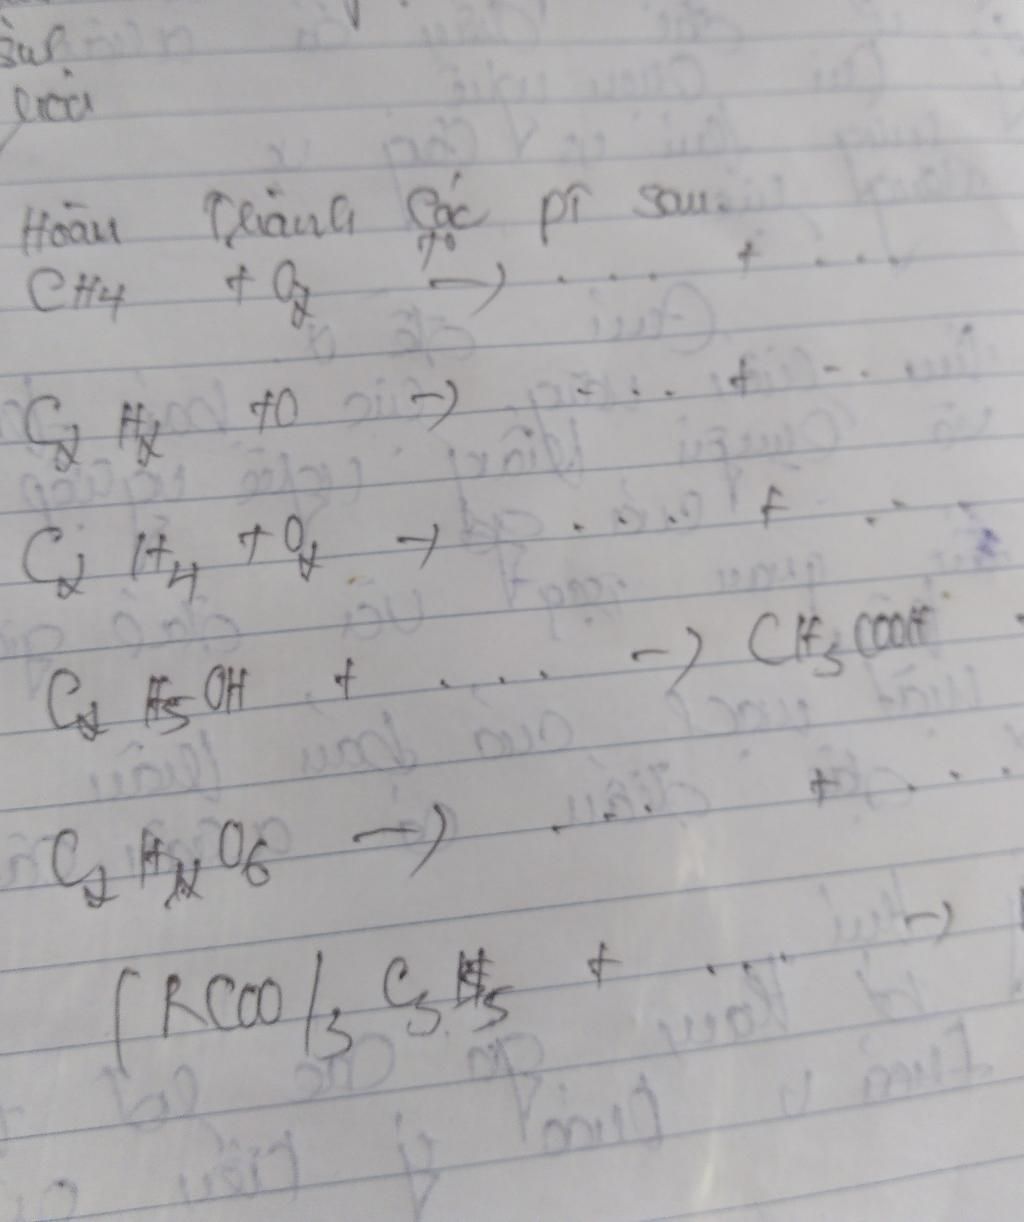 Hoàn thành các pt sau:
CH4 + O2 t° → .... + ....
C2 H2 + O → .... + ...
C2 H4 + O2 → .... + ...
C2 H5 OH + .... → CH3 COOH
C2 H12 O6 → .... + ....
(RCOO)3 C3 H5 + .... →